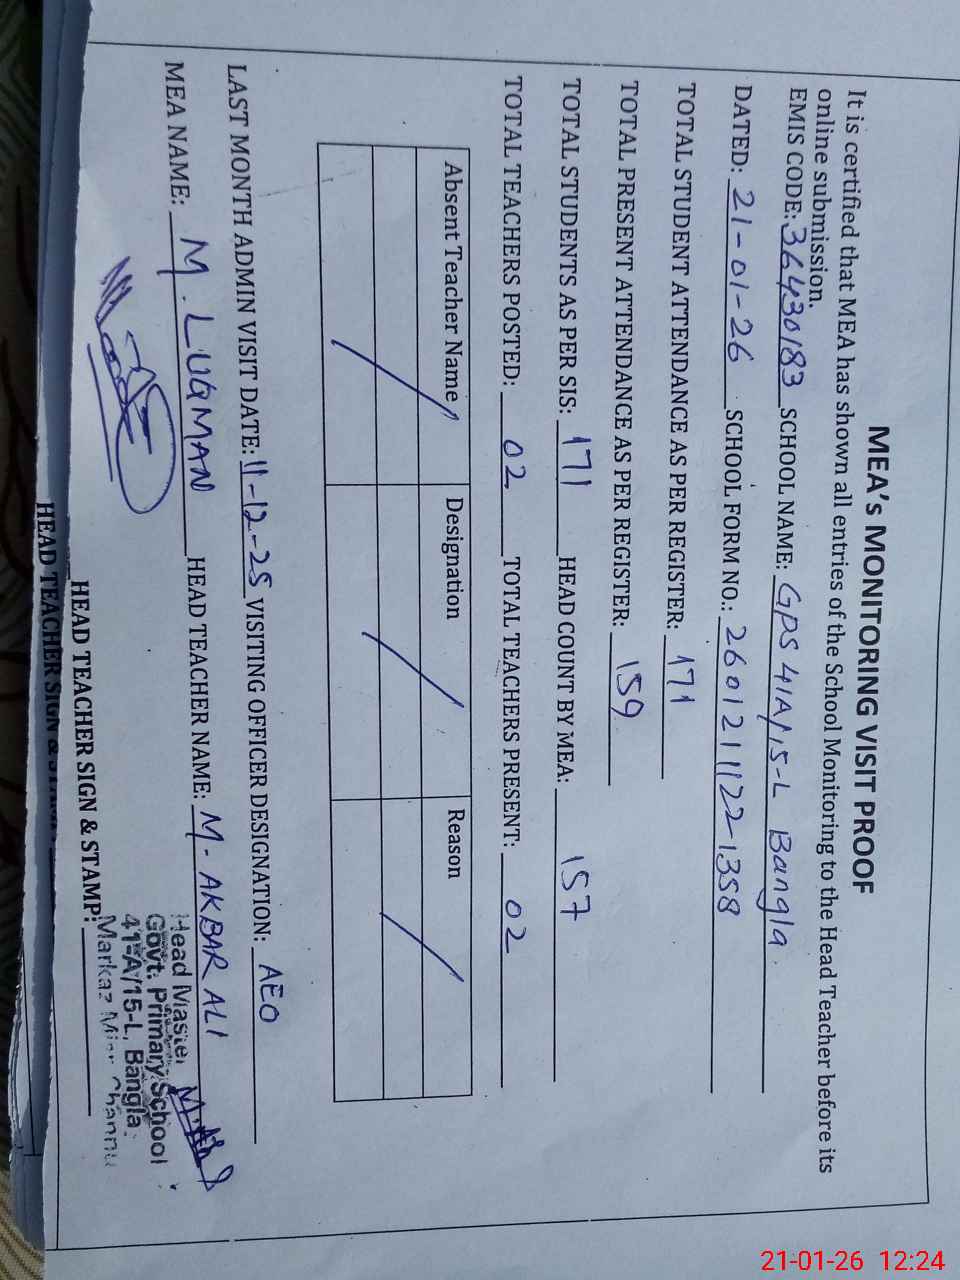 MEA's MONITORING VISIT PROOF
It is certified that MEA has shown all entries of the School Monitoring to the Head Teacher before its
online submission.
EMIS CODE: 36430183 SCHOOL NAME: GPS 41A/15-L Bangla.
DATED: 21-01-26 SCHOOL FORM NO.: 2601211122-1358
TOTAL STUDENT ATTENDANCE AS PER REGISTER: 171
TOTAL PRESENT ATTENDANCE AS PER REGISTER: 159
TOTAL STUDENTS AS PER SIS: 171 HEAD COUNT BY MEA: 157
TOTAL TEACHERS POSTED: 02 TOTAL TEACHERS PRESENT: 02
Absent Teacher Name Designation Reason
LAST MONTH ADMIN VISIT DATE: 11-12-25 VISITING OFFICER DESIGNATION: AEO
MEA NAME: M. LUQMAN HEAD TEACHER NAME: M. AKBAR ALI
Head Master
Govt. Primary School
41-A/15-L, Bangla.
Markaz Mian Channu
HEAD TEACHER SIGN & STAMP:
HEAD TEACHER SIGN & STAMP
21-01-26 12:24